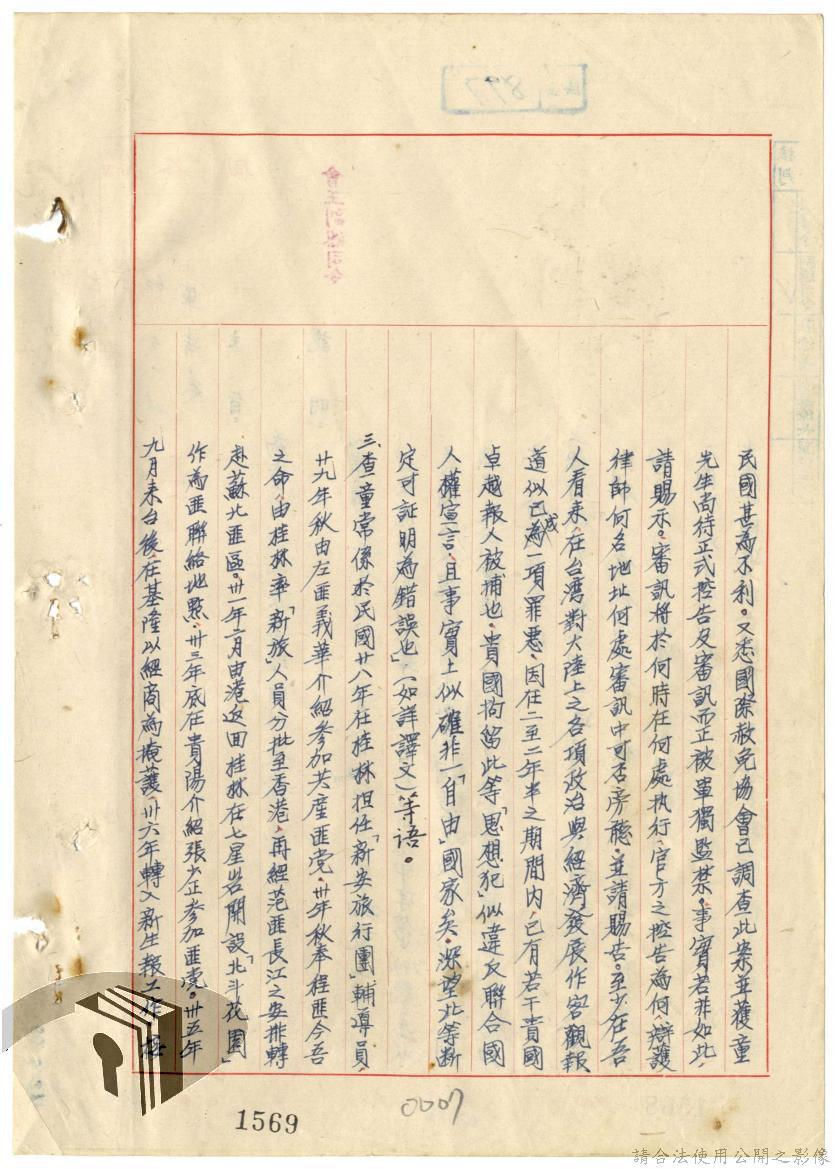 877
會主副總司令
民國甚為不利。又悉國際赦免協會已調查此案並獲童
先生尚待正式控告及審訊而正被單獨監禁。事實若非如此,
請賜示。審訊將於何時在何處执行,官方之控告為何,辯護
律師何名地址何處審訊中可否旁聽。並請賜告。至少在吾
人看來,在台湾對大陸上之各項政治與經濟發展作客觀報
道似已成為一項罪惡,因在二至二年半之期間內,已有若干貴國
卓越報人被捕也。貴國拘留此等「思想犯」似違反聯合國
人權宣言,且事實上似確非一「自由」國家矣。深望此等断
定可証明為錯誤也」(如詳譯文)等语。
三、查童常係於民國廿八年在桂林担任「新安旅行團」輔導員,
廿九年秋由左匪義華介紹參加共產匪党。卅年秋奉程匪今吾
之命,由桂林率「新旅」人員分批至香港,再經范匪長江之安排轉
赴蘇北匪區。卅一年二月由港返回桂林在七星岩開設「北斗花園」
作為匪聯絡地點,卅三年底在貴陽介紹張少正參加匪党。卅五年
九月来台後在基隆以經商為掩護,卅六年轉入新生報工作,
1569
0007
請合法使用公開之影像